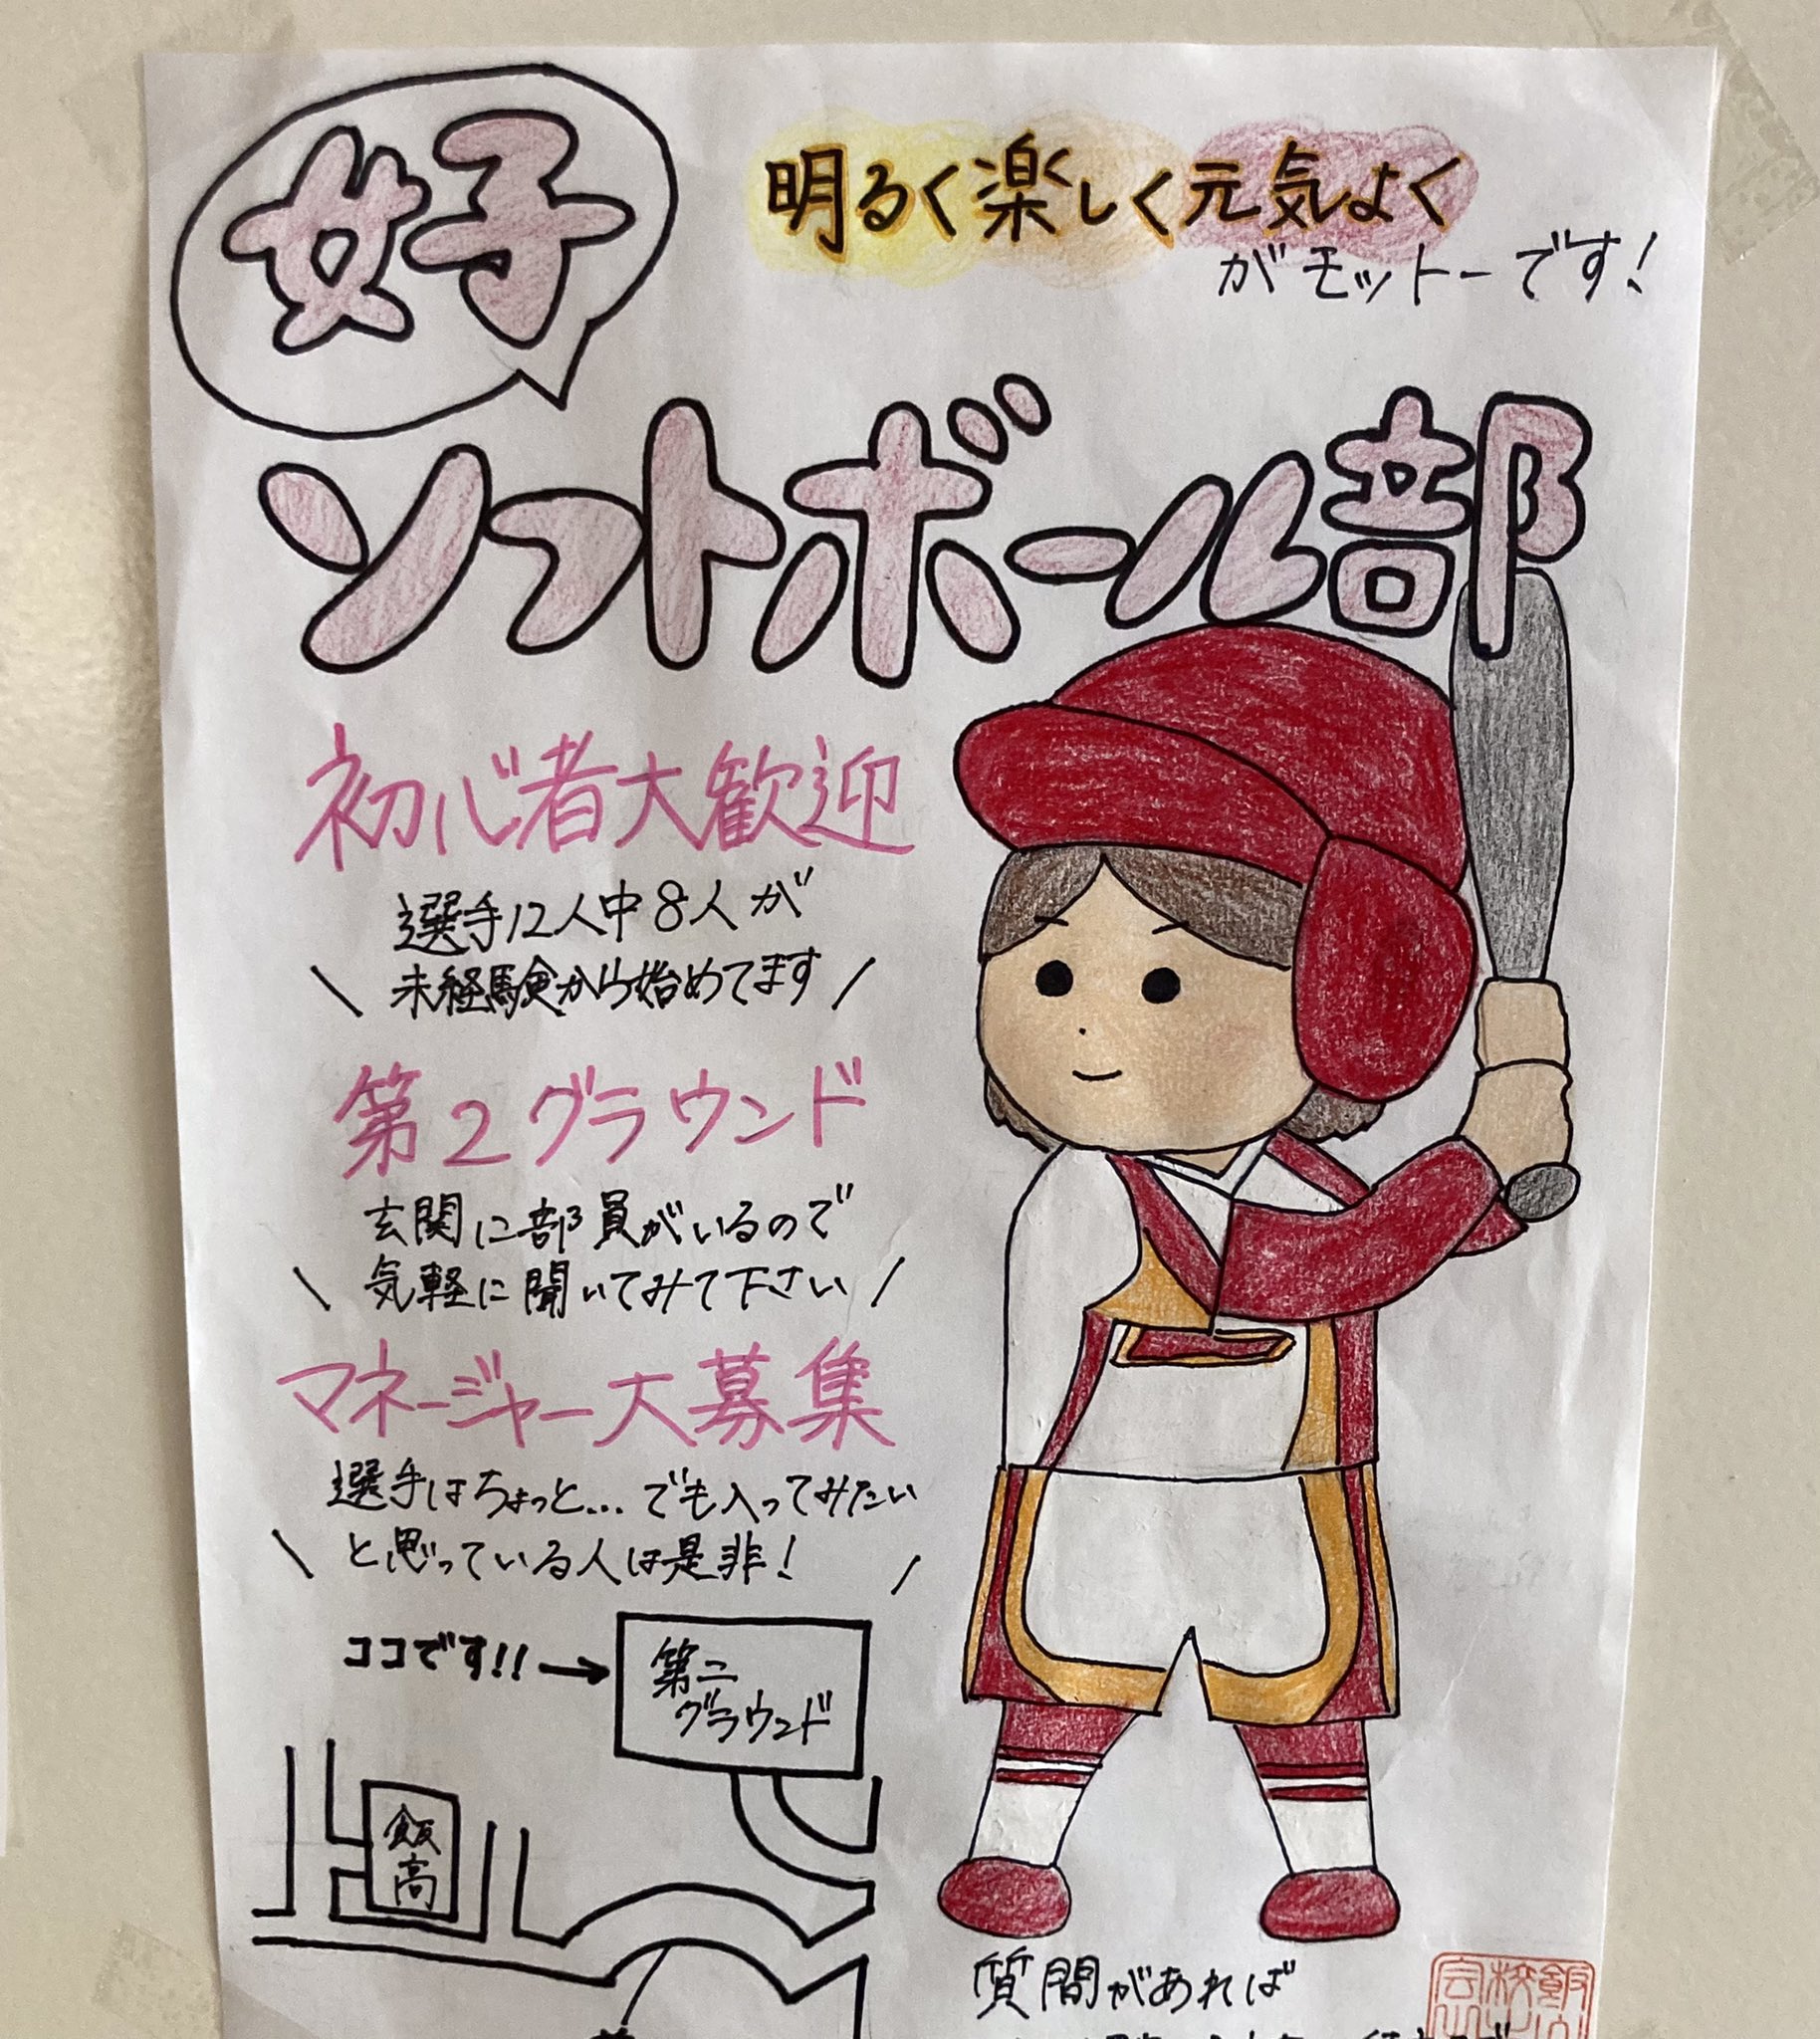 女子
明るく楽しく元気よく
がモットーです!
ソフトボール部
初心者大歓迎
選手12人中8人が
\ 未経験から始めてます /
第2グラウンド
玄関に部員がいるので
\ 気軽に聞いてみて下さい /
マネージャー大募集
選手はちょっと...でも入ってみたい
\ と思っている人は是非! /
ココです!! →
第二
グラウンド
飯
高
質問があれば